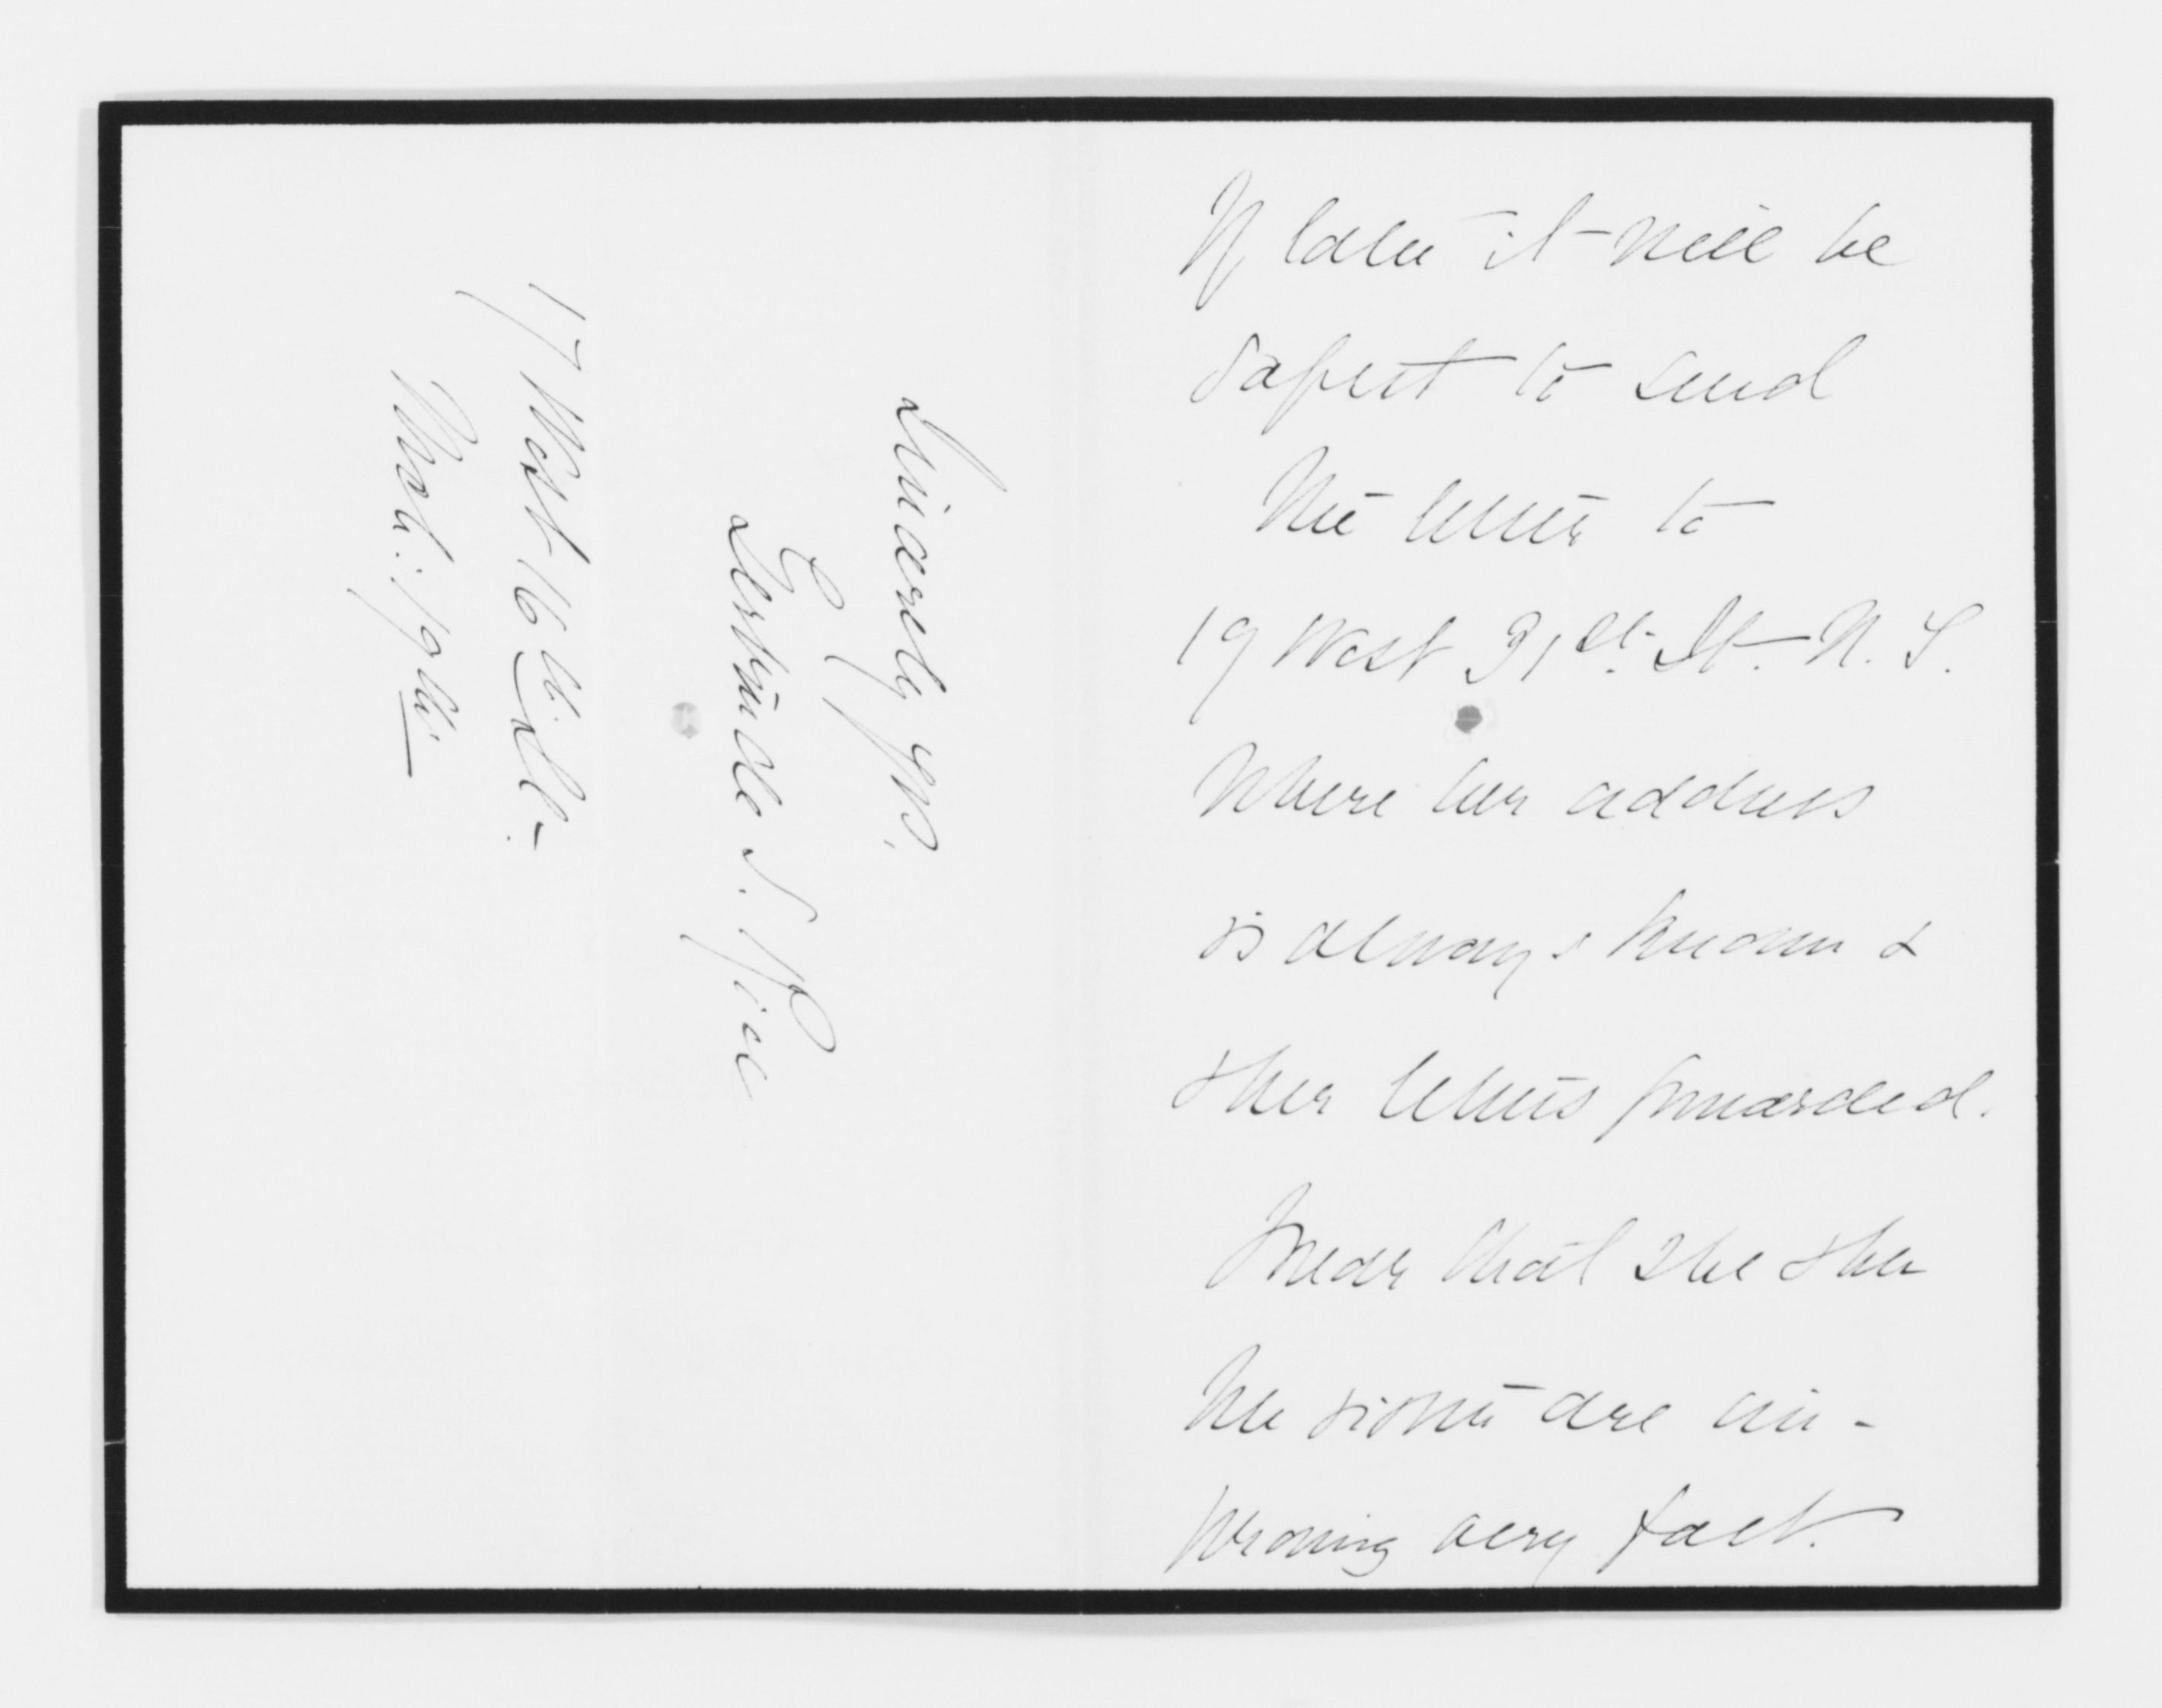 If later it will be
safest to send
the letter to
19 West 31st St. N. Y.
where her address
is always known &
& her letters forwarded.
I hear that she & her
sister are im-
proving very fast.
Sincerely yrs.
Gertrude S. Rice
17 West 16th St.
Mch. 19th.